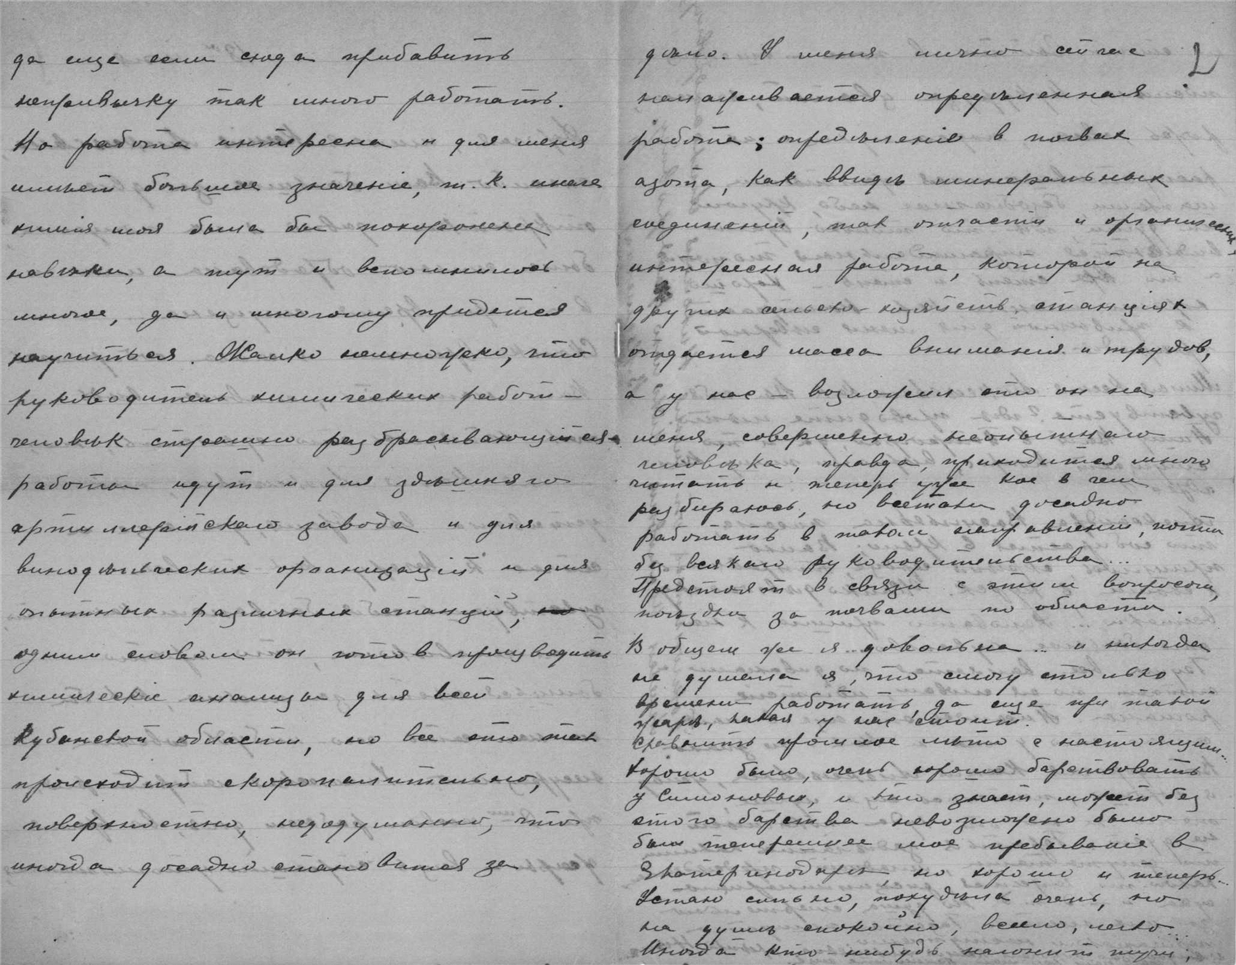 да еще если сюда прибавить
непривычку так много работать.
Но работа интересна и для меня
имѣет большое значеніе, т. к. иначе
химія моя была бы похоронена
навѣки, а тут и вспомнилось
многое, да и многому придется
научиться. Жалко немножко, что
руководитель химических работ –
человѣк страшно разбрасывающійся –
работы идут и для здѣшняго
артиллерійскаго завода и для
винодѣльческих организацій и для
опытных различных станцій,
одним словом он готов производить
химическіе анализы для всей
Кубанской области, но все это так
происходит скоропалительно,
поверхностно, недодуманно, что
иногда досадно становится за
2
дѣло. У меня лично сейчас
налаживается опредѣленная
работа; опредѣленіе в почвах
азота, как ввидѣ минеральных
соединеній, так отчасти и органических
интересная работа, которой на
других сельско-хозяйств. станціях
отдается масса вниманія и трудов,
а у нас – возложил это он на
меня, совершенно неопытнаго
человѣка, правда, приходится много
читать и теперь уже кое в чем
разбираюсь, но всетаки досадно
работать в таком направленіи, почти
без всякаго руководительства...
Предстоят в связи с этим вопросом,
поѣздки за почвами по области.
В общем же я довольна... и никогда
не думала я, что смогу столько
времени работать, да еще при такой
жарѣ, какая у нас стоит.
Сравнить прошлое лѣто с настоящим...
Хорошо было, очень хорошо барствовать
у Симоновых, и кто знает, может без
этого барства невозможно было
бы теперешнее мое пребываніе в
Екатеринодарѣ, но хорошо и теперь...
Устаю сильно, похудѣла очень, но
на душѣ спокойно, весело, легко...
Иногда кто нибудь нагонит тучи,